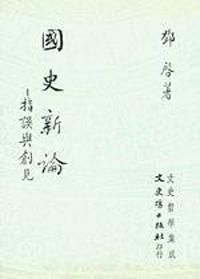 鄧啓著
國史新論
—指誤與創見
文史哲學集成
文史哲出版社印行